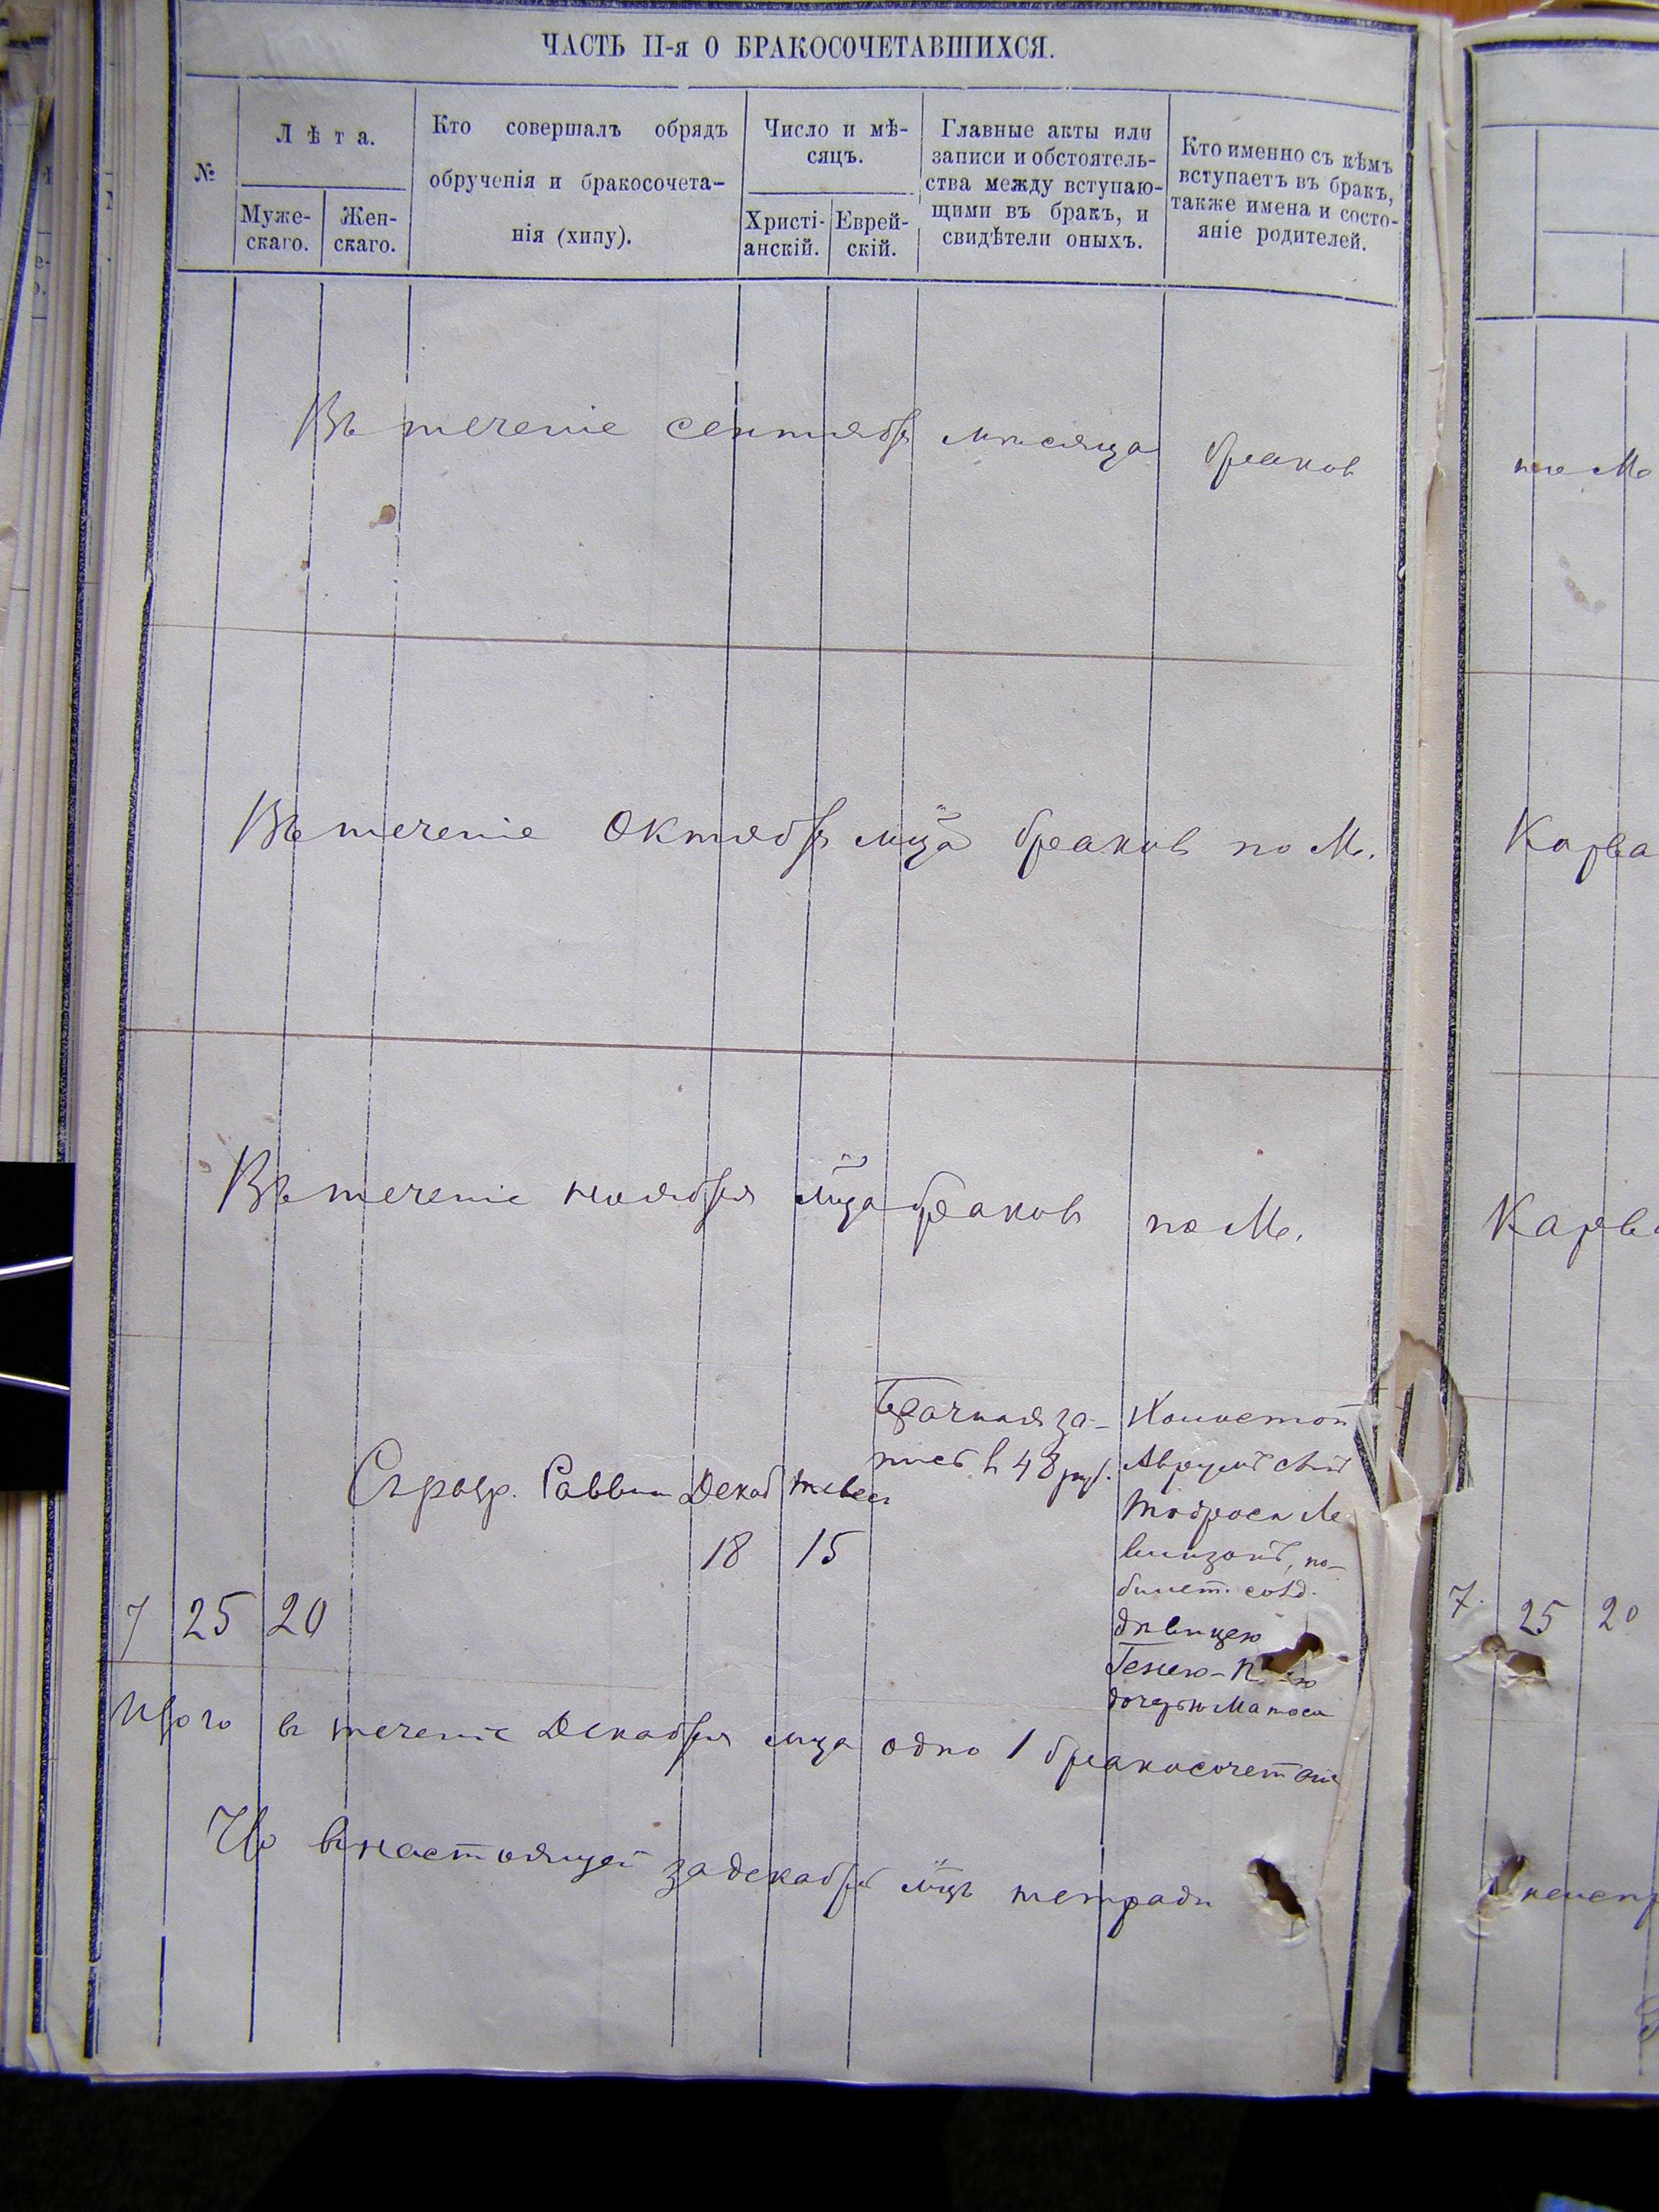 ЧАСТЬ II-я О БРАКОСОЧЕТАВШИХСЯ.
№
Лѣта.
Муже-
скаго.
Жен-
скаго.
Кто совершалъ обрядъ
обрученія и бракосочета-
нія (хипу).
Число и мѣ-
сяцъ.
Христі-
анскій.
Еврей-
скій.
Главные акты или
записи и обстоятель-
ства между вступаю-
щими въ бракъ, и
свидѣтели оныхъ.
Кто именно съ кѣмъ
вступаетъ въ бракъ,
также имена и состо-
яніе родителей.
Въ теченіе сентября мѣсяца браков
Въ теченіе октября мца браковъ по М.
Въ теченіе ноября мца браковъ по М.
7 25 20
Раввин
Декаб 18
тевес 15
Брачная за-
пись в 48 руб.
дѣвицею
дочерью
Итого в теченіе Декабря мца одно 1 бракосочетаніе
Что в настоящей за декабрь мцъ тетради
по М
Карва
7. 25 20